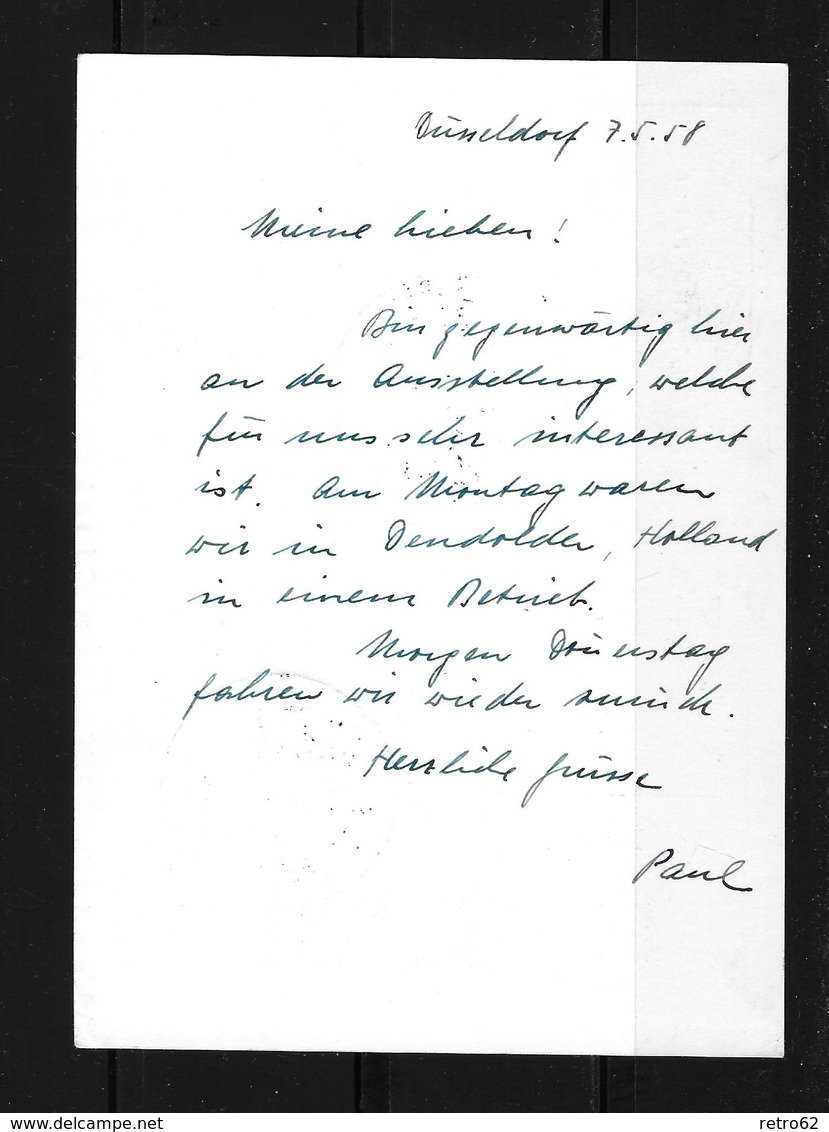 Düsseldorf 7.5.58
Meine Lieben!
Bin gegenwärtig hier
an der Ausstellung, welche
für uns sehr interessant
ist. Am Montag waren
wir in Dendolder, Holland
in einem Betrieb.
Morgen Donnerstag
fahren wir wieder zurück.
Herzliche Grüsse
Paul
www.delcampe.net
retro62